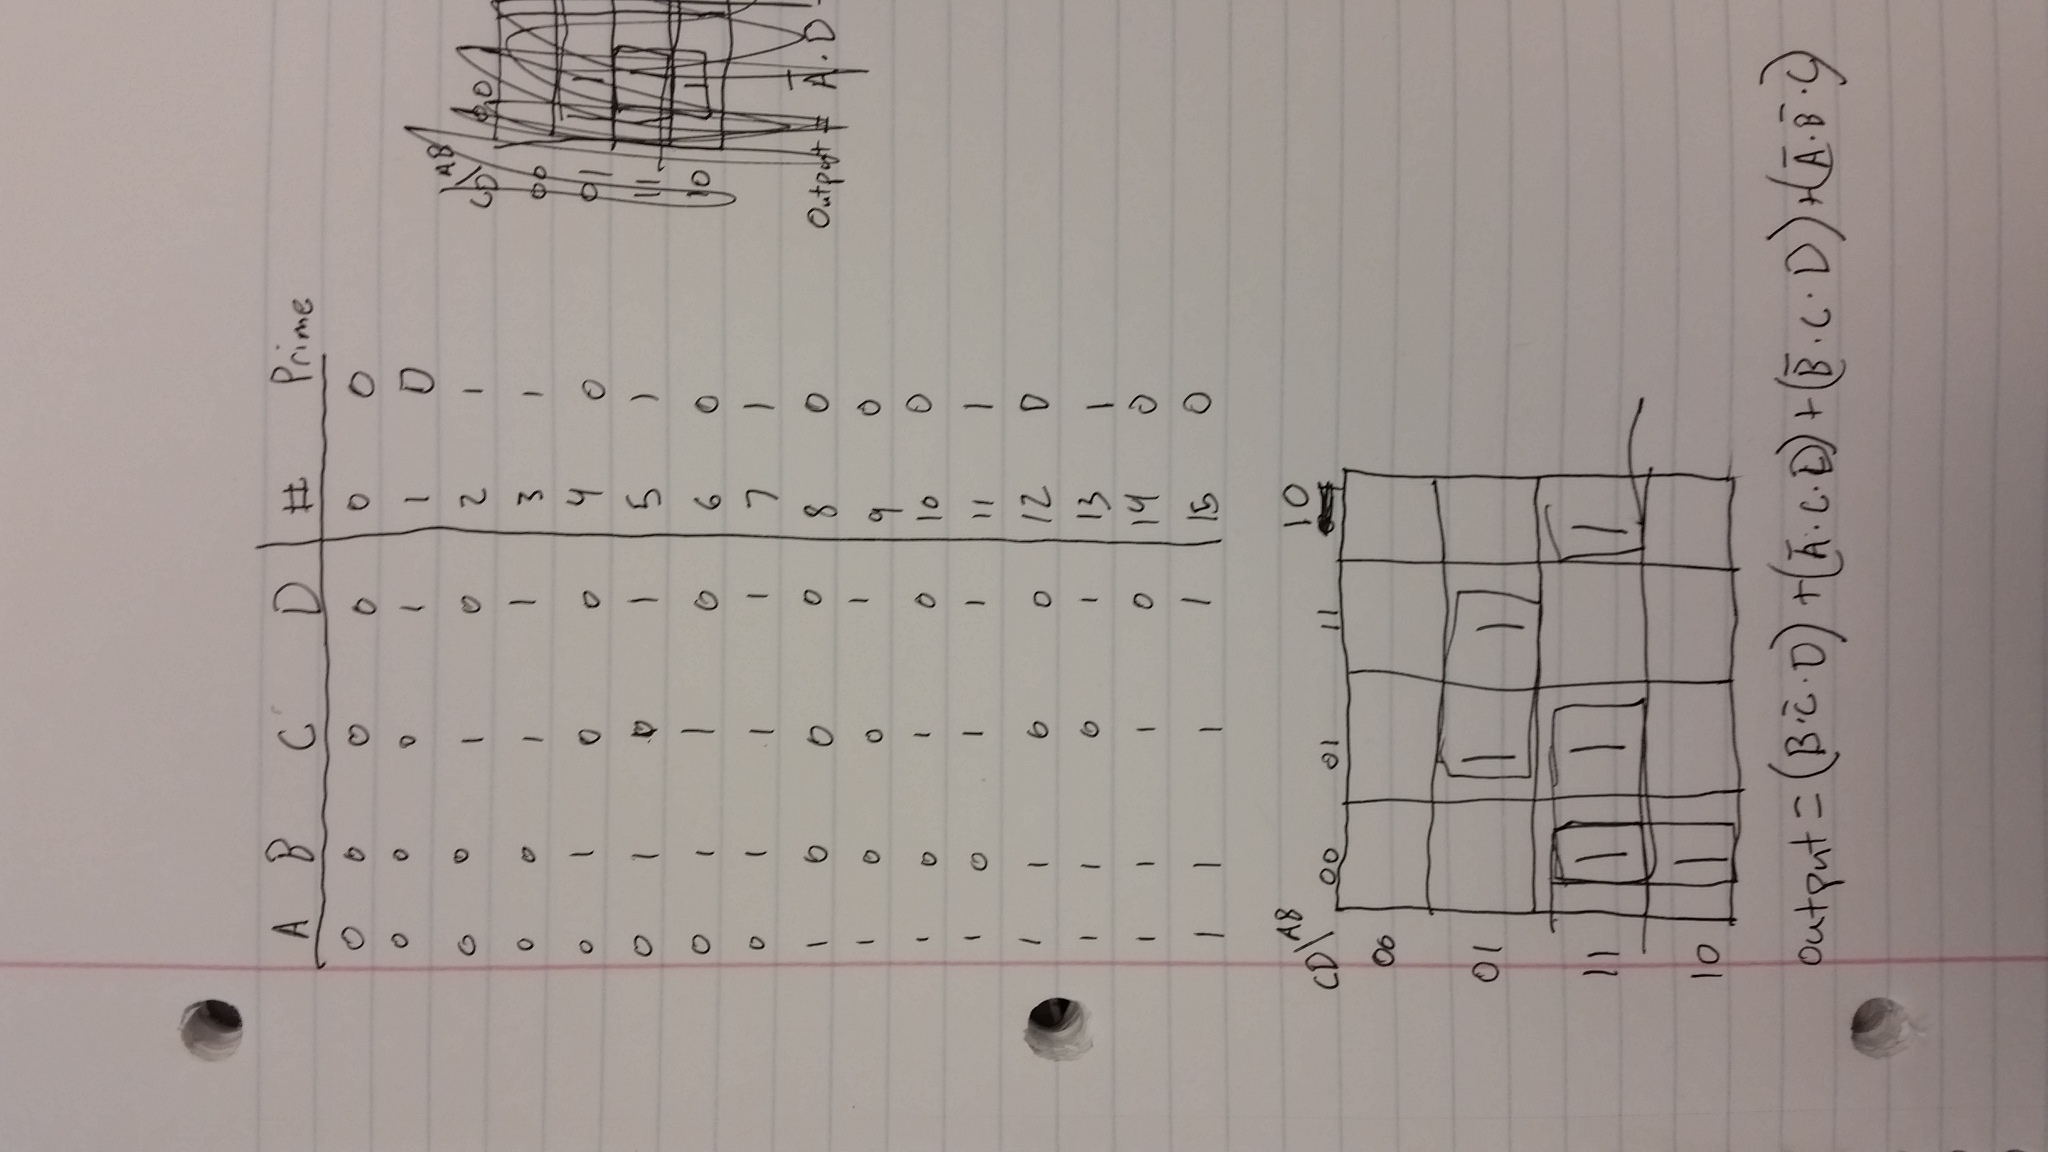 A B C D # Prime
0 0 0 0 0 0
0 0 0 1 1 0
0 0 1 0 2 1
0 0 1 1 3 1
0 1 0 0 4 0
0 1 0 1 5 1
0 1 1 0 6 0
0 1 1 1 7 1
1 0 0 0 8 0
1 0 0 1 9 0
1 0 1 0 10 0
1 0 1 1 11 1
1 1 0 0 12 0
1 1 0 1 13 1
1 1 1 0 14 0
1 1 1 1 15 0
CD\AB 00
00
01 1 1
11
10
Output = A̅·D
CD\AB 00 01 11 10
00
01 1 1
11 1 1 1
10 1
output = (B·C̅·D)+(A̅·C·D)+(B̅·C·D)+(A̅·B̅·C)